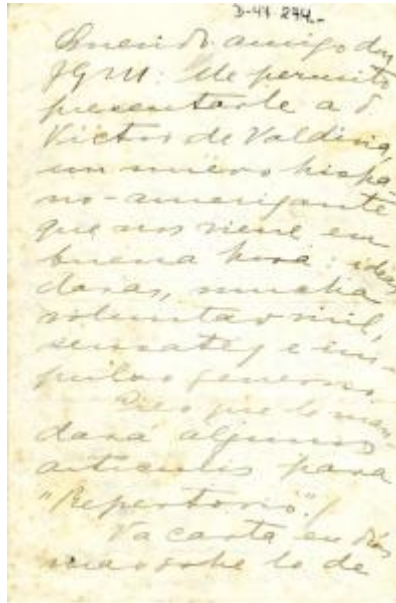 D-44-274.-
Querido amigo don
JGM: Me permito
presentarle a D.
Victor de Valdivia,
un nuevo hispa-
no-amerigante
que nos viene en
buena hora: ideas
claras, mucha
voluntad viril,
sensatez e im-
pulso generoso.
Creo que le man-
dará algunos
artículos para
"Repertorio".
Va carta en días
mas sobre lo de